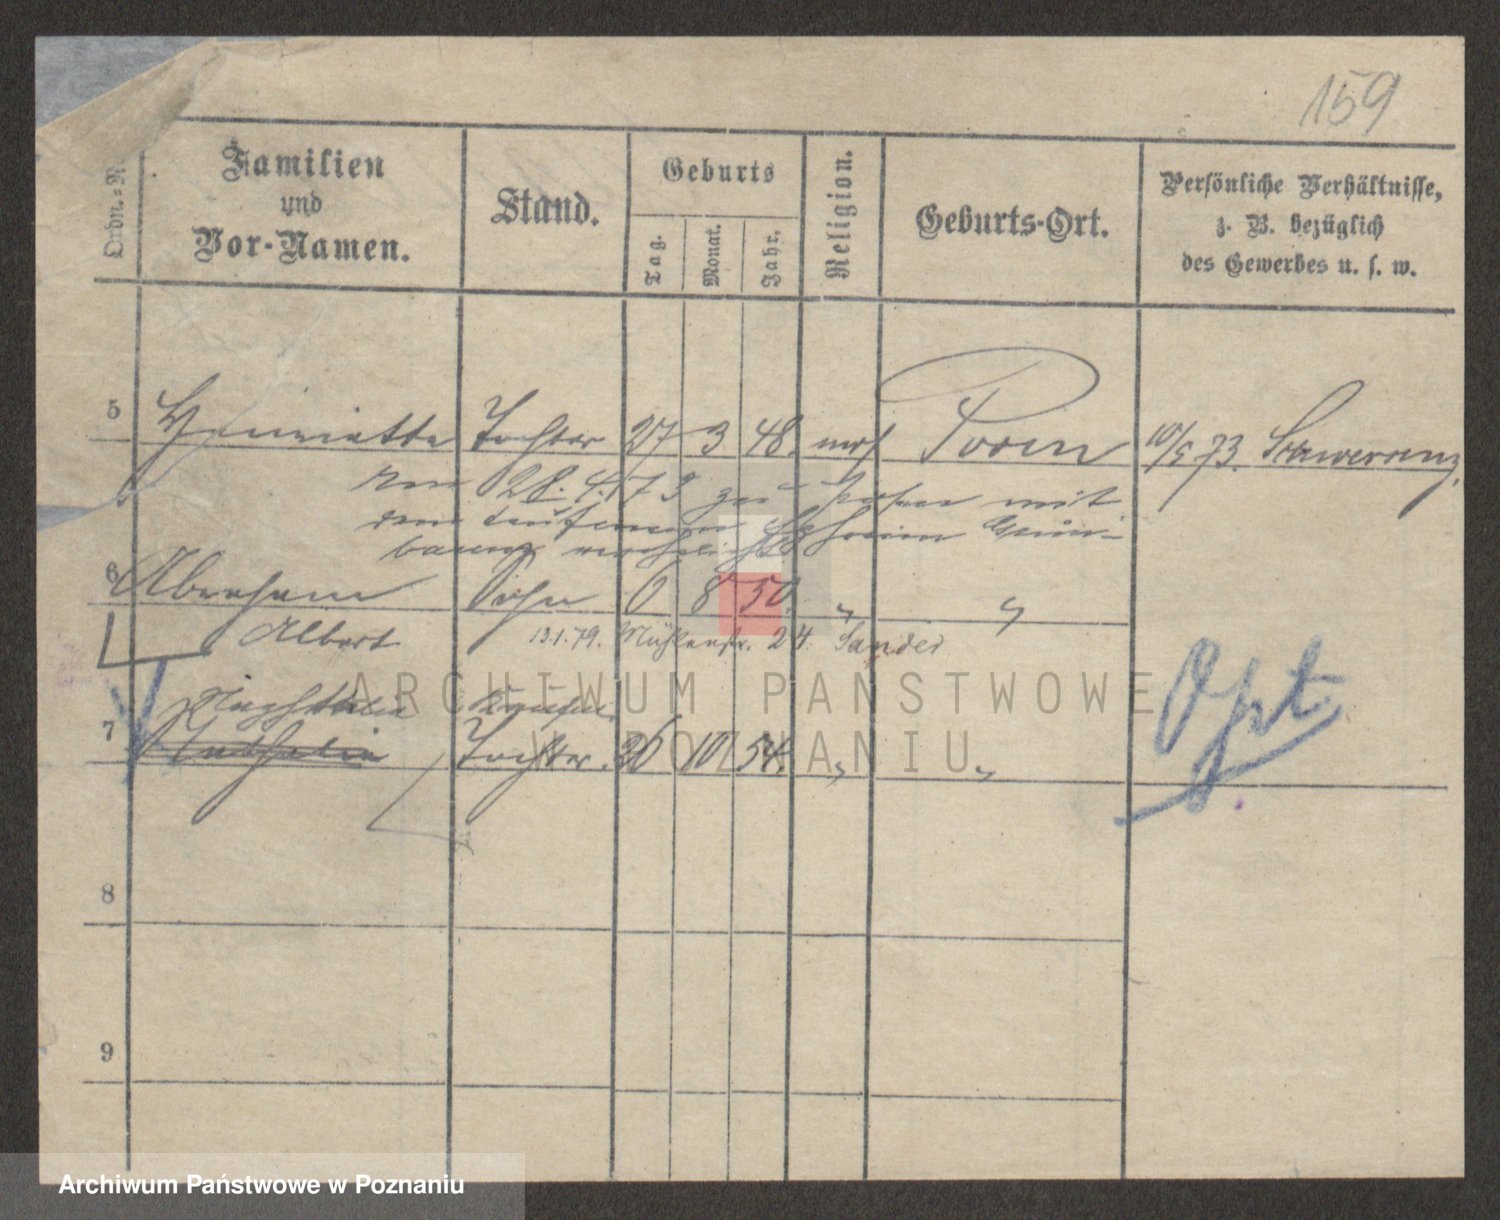 159
Ordn.-N
Familien
und
Vor-Namen.
Stand.
Geburts
Tag.
Monat.
Jahr.
Religion.
Geburts-Ort.
Persönliche Verhältnisse,
z. B. bezüglich
des Gewerbes u. s. w.
5 Henriette Tochter 27 3 48. mos Posen 10/5 73.
28. 4. 73 zu Posen mit
dem Kaufmann
6 Abraham Sohn 6 8 50. " "
Albert 13.1.79. Mühlenstr. 24. Sander
7 Nathalia Tochter. 26 10 54. " "
Opt
8
9
ARCHIWUM PAŃSTWOWE
W POZNANIU
Archiwum Państwowe w Poznaniu